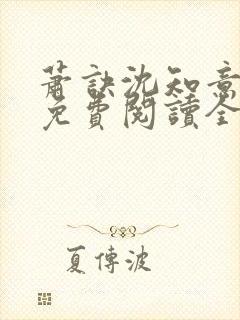 蕭訣沈知意
免費閱讀全
夏傳波